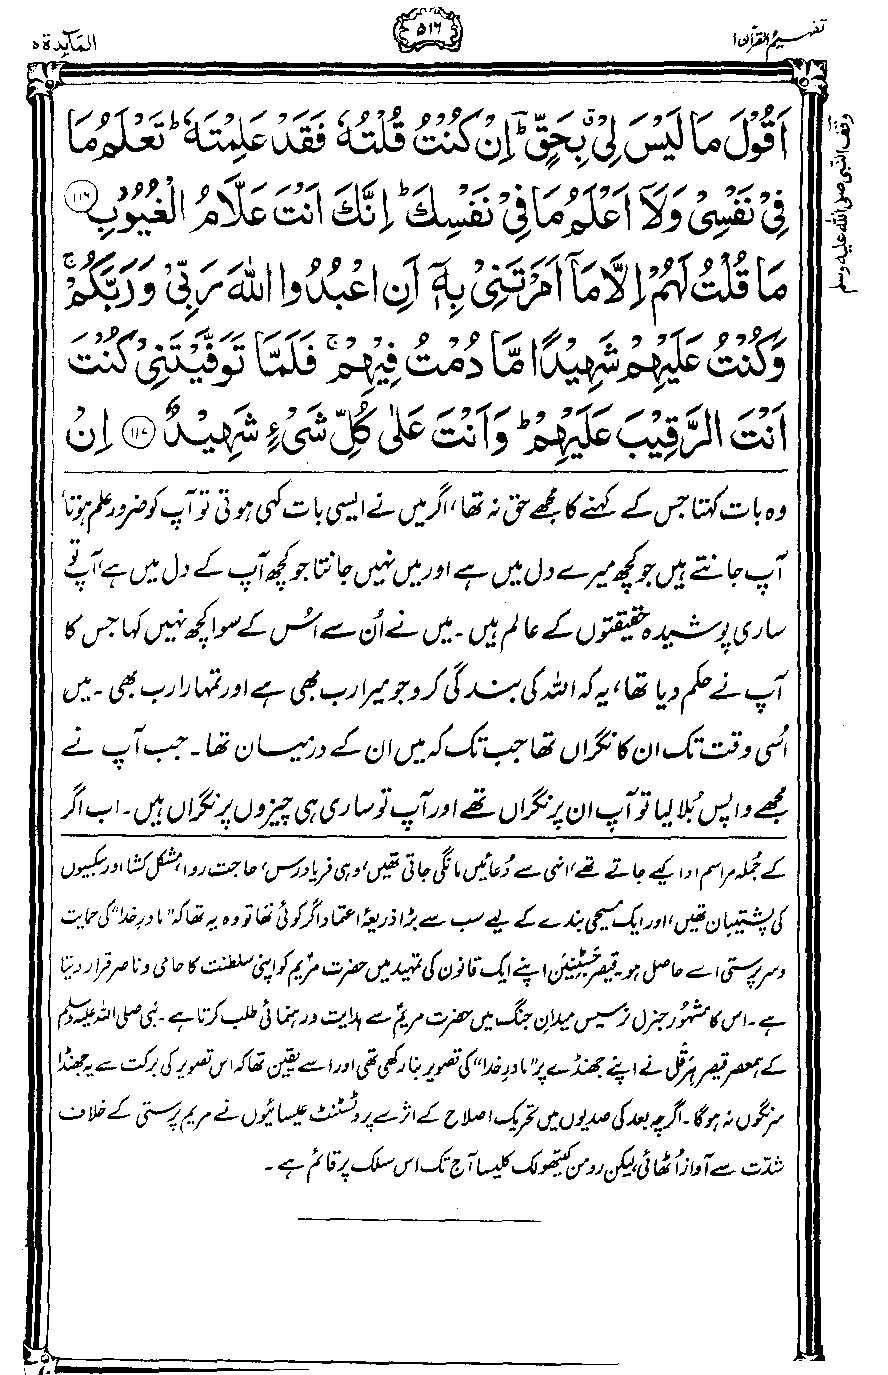 تفہیم القرآن ۱
۵۱۶
المآئدۃ ۵
وقف النبی صلی اللہ علیہ وسلم
اَقُوْلَ مَا لَيْسَ لِیْ ۗ بِحَقٍّ ؕ اِنْ كُنْتُ قُلْتُهٗ فَقَدْ عَلِمْتَهٗ ؕ تَعْلَمُ مَا
فِیْ نَفْسِیْ وَلَاۤ اَعْلَمُ مَا فِیْ نَفْسِكَ ؕ اِنَّكَ اَنْتَ عَلَّامُ الْغُيُوْبِ ﴿۱۱۶﴾
مَا قُلْتُ لَهُمْ اِلَّا مَاۤ اَمَرْتَنِیْ بِهٖۤ اَنِ اعْبُدُوا اللّٰهَ رَبِّیْ وَرَبَّكُمْ ۚ
وَكُنْتُ عَلَيْهِمْ شَهِيْدًا مَّا دُمْتُ فِيْهِمْ ۚ فَلَمَّا تَوَفَّيْتَنِیْ كُنْتَ
اَنْتَ الرَّقِيْبَ عَلَيْهِمْ ؕ وَاَنْتَ عَلٰی كُلِّ شَیْءٍ شَهِيْدٌ ﴿۱۱۷﴾ اِنْ
وہ بات کہتا جس کے کہنے کا مجھے حق نہ تھا، اگر میں نے ایسی بات کہی ہوتی تو آپ کو ضرور علم ہوتا،
آپ جانتے ہیں جو کچھ میرے دل میں ہے اور میں نہیں جانتا جو کچھ آپ کے دل میں ہے، آپ تو
ساری پوشیدہ حقیقتوں کے عالم ہیں۔ میں نے اُن سے اُس کے سوا کچھ نہیں کہا جس کا
آپ نے حکم دیا تھا، یہ کہ اللہ کی بندگی کرو جو میرا رب بھی ہے اور تمہارا رب بھی۔ میں
اُسی وقت تک ان کا نگراں تھا جب تک کہ میں ان کے درمیان تھا۔ جب آپ نے
مجھے واپس بُلا لیا تو آپ ان پر نگراں تھے اور آپ تو ساری ہی چیزوں پر نگراں ہیں۔ اب اگر
کے جُملہ مراسم ادا کیے جاتے تھے، انہی سے دُعائیں مانگی جاتی تھیں، وہی فریاد رس، حاجت روا، مشکل کشا اور بیکسوں
کی پشتیبان تھیں، اور ایک مسیحی بندے کے لیے سب سے بڑا ذریعۂ اعتماد اگر کوئی تھا تو وہ یہ تھا کہ ”مادرِ خدا“ کی حمایت
و سرپرستی اسے حاصل ہو۔ قیصر جَسٹِینَن اپنے ایک قانون کی تمہید میں حضرت مریمؑ کو اپنی سلطنت کا حامی و ناصر قرار دیتا
ہے۔ اس کا مشہور جنرل نرسیس میدانِ جنگ میں حضرت مریمؑ سے ہدایت و رہنمائی طلب کرتا ہے۔ نبی صلی اللہ علیہ وسلم
کے ہمعصر قیصر ہِرَقل نے اپنے جھنڈے پر ”مادرِ خدا“ کی تصویر بنا رکھی تھی اور اسے یقین تھا کہ اس تصویر کی برکت سے یہ جھنڈا
سرنگوں نہ ہوگا۔ اگرچہ بعد کی صدیوں میں تحریک اصلاح کے اثر سے پروٹسٹنٹ عیسائیوں نے مریم پرستی کے خلاف
شدّت سے آواز اُٹھائی، لیکن رومن کیتھولک کلیسا آج تک اس مسلک پر قائم ہے۔